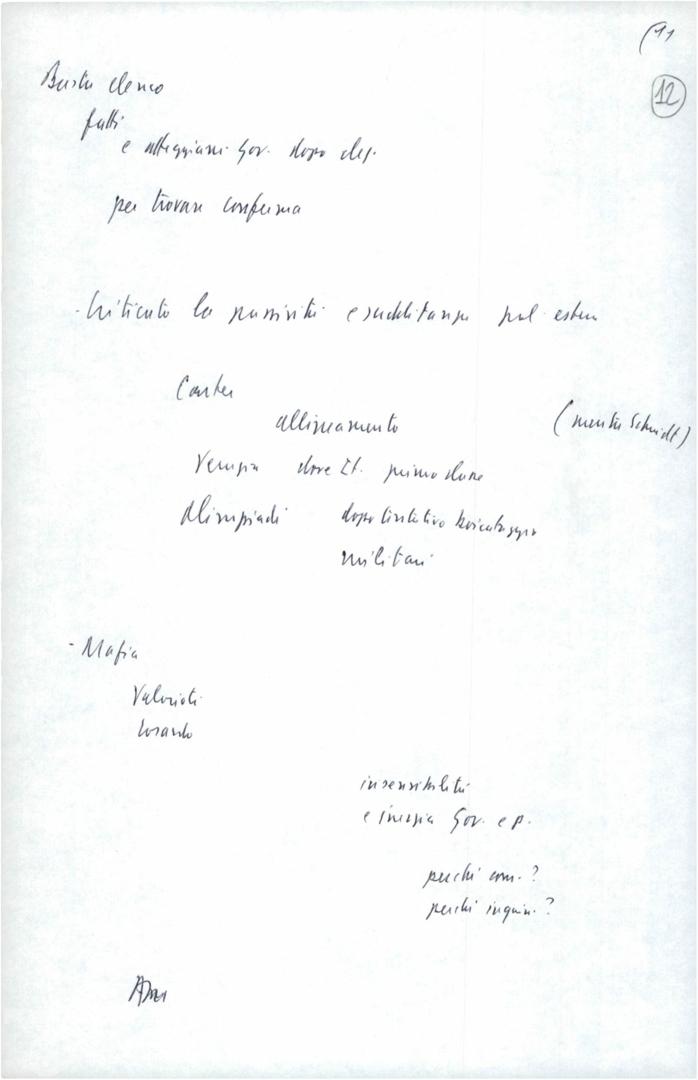 (11
12
Basta elenco
fatti
e atteggiam. Gov. dopo elez.
per trovare conferma
- Criticato la passività e sudditanza pol. estera
Carter
allineamento (mentre Schmidt)
Venezia dove It.
Olimpiadi dopo tentativo boicottaggio
militari
- Mafia
Valarioti
Losardo
insensibilità
e inerzia Gov. e p.
perché com.?
perché inquin.?